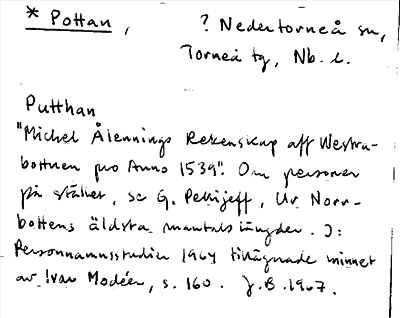 * Pottan, ? Nedertorneå sn,
Torneå tg, Nb. l.
Putthan
"Michel Ålennings Rekenskap aff Westra-
bottnen pro Anno 1539". Om personer
på stället, se G. Pellijeff, Ur Norr-
bottens äldsta mantalslängder. I:
Personnamnsstudier 1964 tillägnade minnet
av Ivar Modéer, s. 160. J.B. 1967.